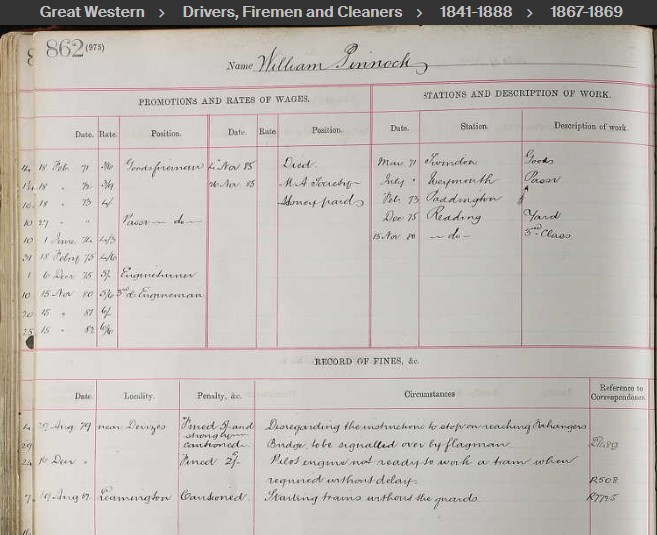 Great Western > Drivers, Firemen and Cleaners > 1841-1888 > 1867-1869
862 (975)
Name William Pinnock
PROMOTIONS AND RATES OF WAGES.
STATIONS AND DESCRIPTION OF WORK.
Date. Rate. Position. Date. Rate. Position. Date. Station. Description of work.
18 Feb 71 3/6 Goodsfireman Nov 85 Died. Mar 71 Swindon Goods
18 " 72 3/9 Nov 85 M A Society July " Weymouth Passr
18 " 73 4/ Money paid Feb 73 Paddington "
27 " " Passr — do — Dec 75 Reading Yard
1 June 74 15 Nov 80 — do — 3rd Class
18 Febry 75 4/6
6 Decr 75 5/- Engineturner
15 Nov 80 5/6 3rd cl Engineman
15 " 81 6/
15 " 82 6/6
RECORD OF FINES, &c.
Date. Locality. Penalty, &c. Circumstances Reference to Correspondence.
Aug 79 near Devizes Fined and Disregarding the instructions to stop on reaching
strongly
cautioned. Bridge, to be signalled over by flagman
Decr " Fined 2/. Pilot engine not ready to work a train when
required without delay. R508
19 Aug Leamington Cautioned. Starting trains without the guards. R7795